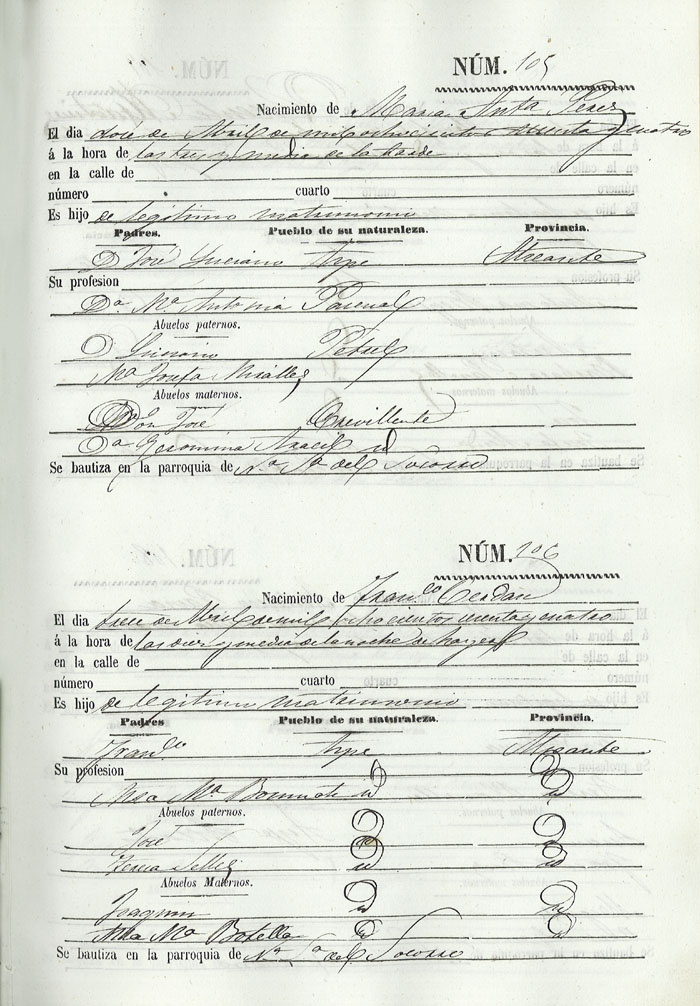 NÚM. 105
Nacimiento de Maria Anta Perez
El dia doce de Abril de mil ochocientos sesenta y cuatro
á la hora de las tres y media de la tarde
en la calle de
número cuarto
Es hijo de legitimo matrimonio
Padres. Pueblo de su naturaleza. Provincia.
D José Luciano Aspe Alicante
Su profesion
Dª. Mª. Antonia Pascual
Abuelos paternos.
D Luciano Petrel
Mª Josefa Miralles
Abuelos maternos.
Don José Crevillente
Dª Geronima Aracil id
Se bautiza en la parroquia de Nª Sª del Socorro
NÚM. 106
Nacimiento de Franco Cerdan
El dia trece de Abril de mil ochocientos sesenta y cuatro
á la hora de las diez y media de la noche de hayer
en la calle de
número cuarto
Es hijo de legitimo matrimonio
Padres Pueblo de su naturaleza. Provincia.
Franco Aspe Alicante
Su profesion
Mª id id
Abuelos paternos.
José id id
Teresa id id
Abuelos Maternos.
Joaquin id id
Ana Mª Botella id id
Se bautiza en la parroquia de Nª Sª del Socorro